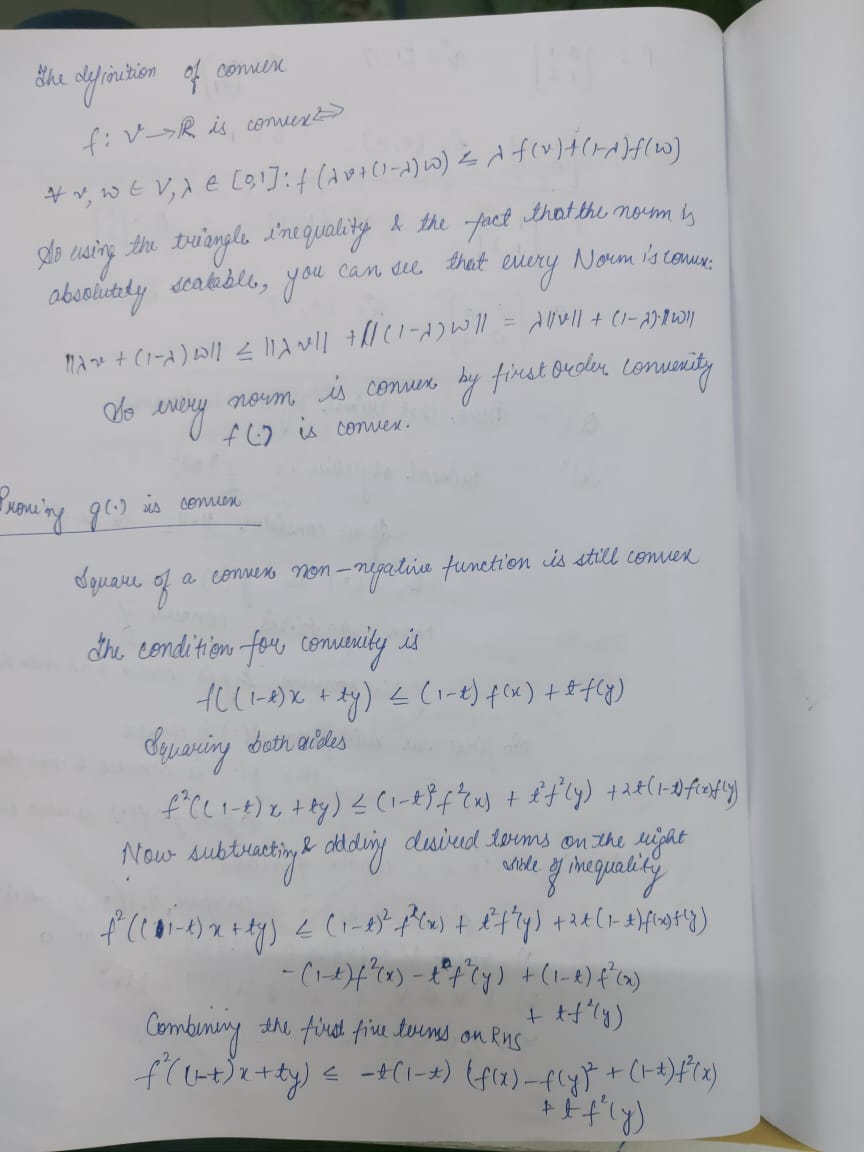 The definition of convex
f: V → R is convex ⇔
∀ v, w ∈ V, λ ∈ [0,1]: f(λv + (1-λ)w) ≤ λ f(v) + (1-λ) f(w)
So using the triangle inequality & the fact that the norm is
absolutely scalable, you can see that every Norm is convex:
||λv + (1-λ)w|| ≤ ||λv|| + ||(1-λ)w|| = λ||v|| + (1-λ)·||w||
So every norm is convex by first order convexity
f(.) is convex.
Proving g(.) is convex
Square of a convex non-negative function is still convex
The condition for convexity is
f((1-t)x + ty) ≤ (1-t) f(x) + t f(y)
Squaring both sides
f²((1-t)x + ty) ≤ (1-t)² f²(x) + t² f²(y) + 2t(1-t) f(x) f(y)
Now subtracting & adding desired terms on the right
side of inequality
f²((1-t)x + ty) ≤ (1-t)² f²(x) + t² f²(y) + 2t(1-t) f(x) f(y)
-(1-t) f²(x) - t f²(y) + (1-t) f²(x)
+ t f²(y)
Combining the first five terms on RHS
f²((1-t)x + ty) ≤ -t(1-t) (f(x) - f(y)² + (1-t) f²(x)
+ t f²(y)